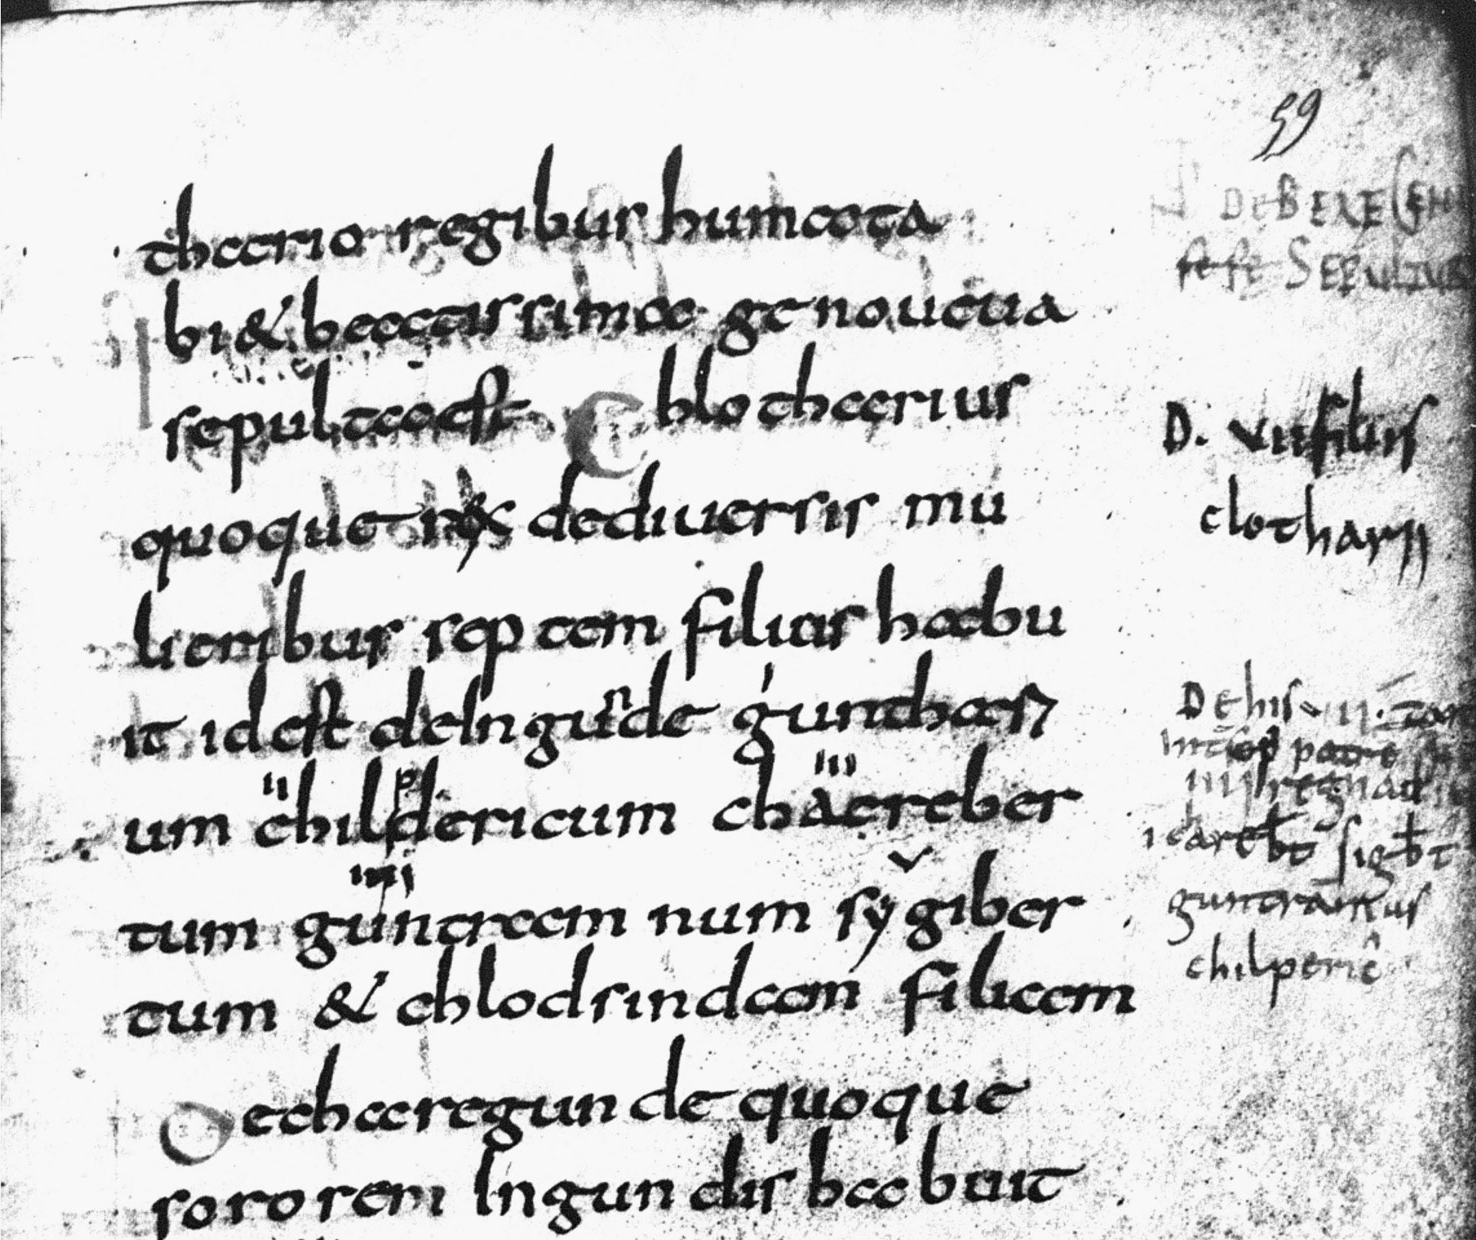 59
thario regibus humata
bi & beatissima genoueua
sepulta est Chlotharius
quoque rex de diuersis mu
lieribus septem filius habu
it id est de Ingunde gunthari
um childericum chaereber
tum guntram num sygiber
tum & chlodsindam filiam
De charegunde quoque
sororem Ingundis habuit
D. vii filiis
clotharii
De his
guntramnus
chilperic